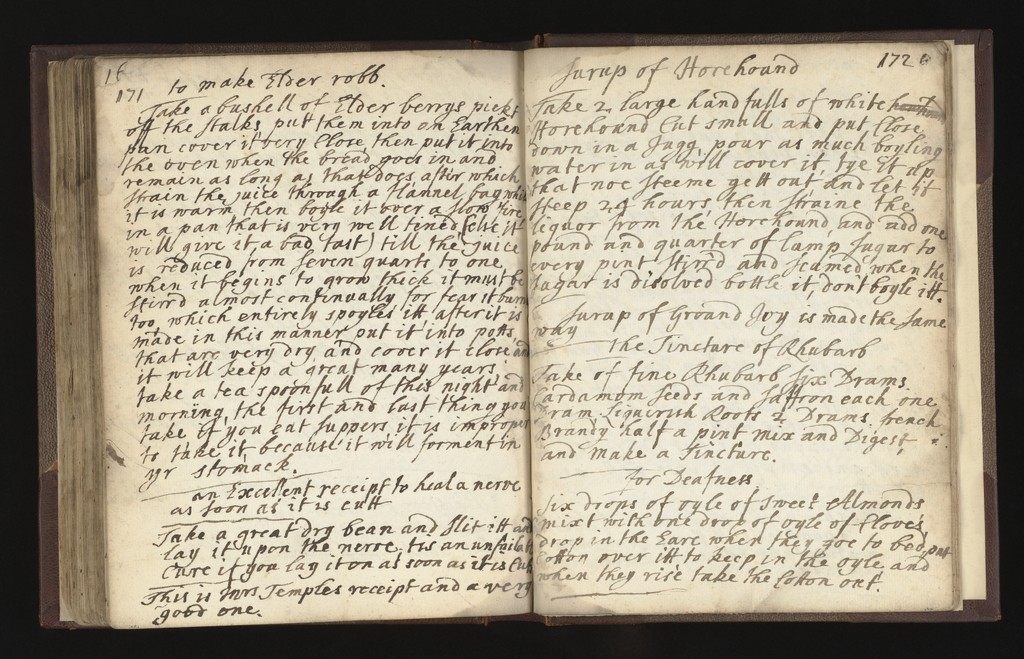 16
171
to make Elder robb.
Take a bushell of Elder berrys pickt
off the stalks putt them into an Earthen
pan cover it very Close, then put it into
the oven when the bread goes in and
remain as long as that does, after which
strain the juice through a flannel bag while
it is warm then boyle it over a slow fire
in a pan that is very well tined (else it
will give it, a bad tast) till the juice
is reduced from seven quarts to one,
when it begins to grow thick it must be
stirrd almost continually for fear it burn
too, which entirely spoyles itt after it is
made in this manner put it into potts
that are very dry, and cover it close and
it will keep a great many years,
take a tea spoonfull of this night and
morning, the first and last thing you
take if you eat suppers it is improper
to take it, because it will forment in
yr stomack.
an Excellent receipt to heal a nerve
as soon as it is cutt
Take a great dry bean and slit itt and
lay it upon the nerve, tis an unfailable
Cure if you lay it on as soon as it is Cutt
This is Mrs Temples receipt and a very
good one.
172
Surup of Horehound
Take 2 large handfulls of white
Horehound Cut small and put Close
down in a Jugg, pour as much boyling
water in as will cover it, tye it up
that noe steeme gett out, and let it
steep 24 hours, then straine the
liquor from the Horehound, and add one
pound and quarter of lamp sugar to
every pint stirr'd and scumed, when the
sugar is disolved bottle it, dont boyle itt.
Surup of Ground Ivy is made the same
way
the Tincture of Rhubarb
Take of fine Rhubarb six Drams
Cardamom seeds and saffron each one
Dram Liquirish Roots 2 Drams, french
Brandy half a pint mix and Digest,
and make a Tincture.
For Deafness
Six drops of oyle of sweet Almonds
mixt with one drop of oyle of Cloves
drop in the Eare when they goe to bed, put
Cotton over itt to keep in the oyle, and
when they rise take the Cotton out.